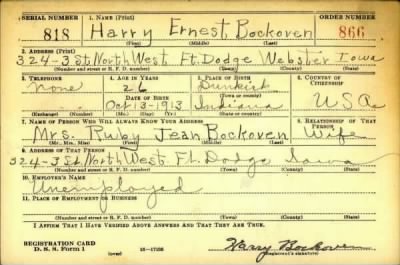 SERIAL NUMBER 1. NAME (Print) ORDER NUMBER
818 Harry Ernest Bockoven 866
(First) (Middle) (Last)
2. ADDRESS (Print)
324-3 St. North West Ft. Dodge Webster Iowa
(Number and street or R. F. D. number) (Town) (County) (State)
3. TELEPHONE 4. AGE IN YEARS 5. PLACE OF BIRTH 6. COUNTRY OF CITIZENSHIP
None 26 Dunkirk
DATE OF BIRTH (Town or county)
Oct 13-1913 Indiana USA
(Exchange) (Number) (Mo.) (Day) (Yr.) (State or country)
7. NAME OF PERSON WHO WILL ALWAYS KNOW YOUR ADDRESS 8. RELATIONSHIP OF THAT PERSON
Mrs. Ruby Jean Bockoven Wife
(Mr., Mrs., Miss) (First) (Middle) (Last)
9. ADDRESS OF THAT PERSON
324-3 St. North West Ft. Dodge Iowa
(Number and street or R. F. D. number) (Town) (County) (State)
10. EMPLOYER'S NAME
Unemployed
11. PLACE OF EMPLOYMENT OR BUSINESS
(Number and street or R. F. D. number) (Town) (County) (State)
I AFFIRM THAT I HAVE VERIFIED ABOVE ANSWERS AND THAT THEY ARE TRUE.
REGISTRATION CARD
D. S. S. Form 1 (over) Harry Bockoven
(Registrant's signature)